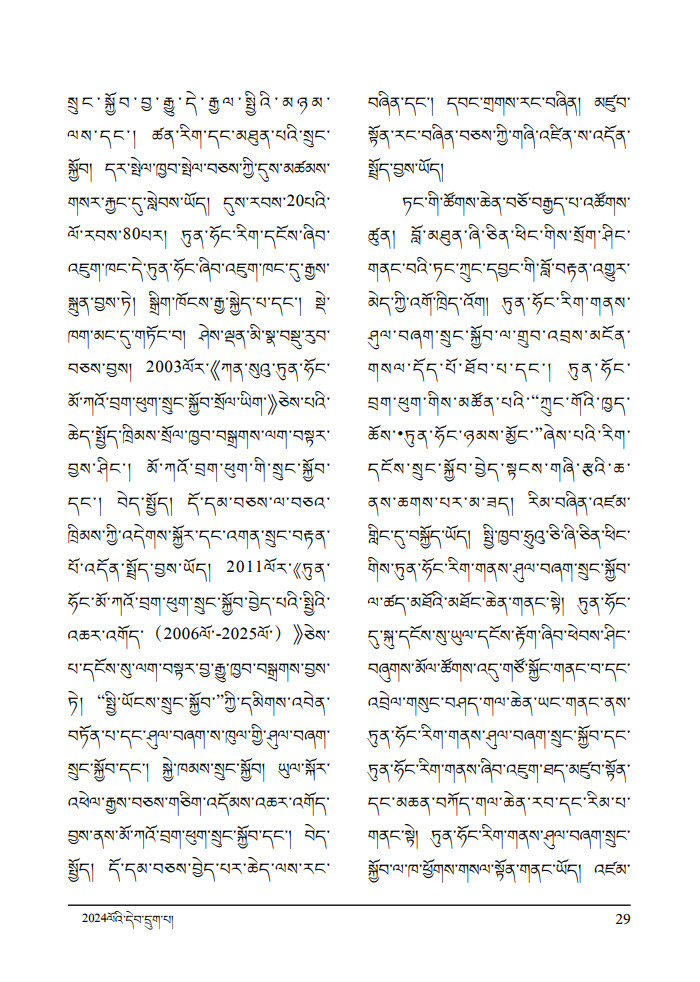 སྲུང་སྐྱོབ་བྱ་རྒྱུ་དེ་རྒྱལ་སྤྱིའི་མཉམ་
ལས་དང་། ཚན་རིག་དང་མཐུན་པའི་སྲུང་
སྐྱོབ། དར་སྤེལ་ཁྱབ་སྤེལ་བཅས་ཀྱི་དུས་མཚམས་
གསར་རྐྱང་དུ་སླེབས་ཡོད། དུས་རབས་20པའི་
ལོ་རབས་80པར། ཏུན་ཧོང་རིག་དངོས་ཞིབ་
འཇུག་ཁང་དེ་ཏུན་ཧོང་ཞིབ་འཇུག་ཁང་དུ་རྒྱས་
སྐྲུན་བྱས་ཏེ། སྒྲིག་ཁོངས་རྒྱ་སྐྱེད་པ་དང་། སྡེ་
ཁག་མང་དུ་གཏོང་བ། ཤེས་ལྡན་མི་སྣ་བསྡུ་རུབ་
བཅས་བྱས། 2003ལོར་《ཀན་སུའུ་ཏུན་ཧོང་
མོ་ཀའོ་བྲག་ཕུག་སྲུང་སྐྱོབ་སྲོལ་ཡིག་》ཅེས་པའི་
ཆེད་སྤྱོད་ཁྲིམས་སྲོལ་ཁྱབ་བསྒྲགས་ལག་བསྟར་
བྱས་ཤིང་། མོ་ཀའོ་བྲག་ཕུག་གི་སྲུང་སྐྱོབ་
དང་། བེད་སྤྱོད། དོ་དམ་བཅས་ལ་བཅའ་
ཁྲིམས་ཀྱི་འདེགས་སྐྱོར་དང་འགན་སྲུང་བརྟན་
པོ་འདོན་སྤྲོད་བྱས་ཡོད། 2011ལོར་《ཏུན་
ཧོང་མོ་ཀའོ་བྲག་ཕུག་སྲུང་སྐྱོབ་བྱེད་པའི་སྤྱིའི་
འཆར་འགོད་ (2006ལོ་-2025ལོ་) 》ཅེས་
པ་དངོས་སུ་ལག་བསྟར་བྱ་རྒྱུ་ཁྱབ་བསྒྲགས་བྱས་
ཏེ། “སྤྱི་ཡོངས་སྲུང་སྐྱོབ་”ཀྱི་དམིགས་འབེན་
བཏོན་པ་དང་ཤུལ་བཞག་ས་ཁུལ་གྱི་ཤུལ་བཞག་
སྲུང་སྐྱོབ་དང་། སྐྱེ་ཁམས་སྲུང་སྐྱོབ། ཡུལ་སྐོར་
འཕེལ་རྒྱས་བཅས་གཅིག་འདོམས་འཆར་འགོད་
བྱས་ནས་མོ་ཀའོ་བྲག་ཕུག་སྲུང་སྐྱོབ་དང་། བེད་
སྤྱོད། དོ་དམ་བཅས་བྱེད་པར་ཆེད་ལས་རང་
བཞིན་དང་། དབང་གྲགས་རང་བཞིན། མཛུབ་
སྟོན་རང་བཞིན་བཅས་ཀྱི་གཞི་འཛིན་ས་འདོན་
སྤྲོད་བྱས་ཡོད།
ཏང་གི་ཚོགས་ཆེན་བཅོ་བརྒྱད་པ་འཚོགས་
ཚུན། བློ་མཐུན་ཞི་ཅིན་ཕིང་གིས་སྲོག་ཤིང་
གནང་བའི་ཏང་ཀྲུང་དབྱང་གི་བློ་བརྟན་འགྱུར་
མེད་ཀྱི་འགོ་ཁྲིད་འོག། ཏུན་ཧོང་རིག་གནས་
ཤུལ་བཞག་སྲུང་སྐྱོབ་ལ་གྲུབ་འབྲས་མངོན་
གསལ་དོད་པོ་ཐོབ་པ་དང་། ཏུན་ཧོང་
བྲག་ཕུག་གིས་མཚོན་པའི་“ཀྲུང་གོའི་ཁྱད་
ཆོས་•ཏུན་ཧོང་ཉམས་མྱོང་”ཞེས་པའི་རིག་
དངོས་སྲུང་སྐྱོབ་བྱེད་སྟངས་གཞི་རྩའི་ཆ་
ནས་ཆགས་པར་མ་ཟད། རིམ་བཞིན་འཛམ་
གླིང་དུ་བསྐྱོད་ཡོད། སྤྱི་ཁྱབ་ཧྲུའུ་ཅི་ཞི་ཅིན་ཕིང་
གིས་ཏུན་ཧོང་རིག་གནས་ཤུལ་བཞག་སྲུང་སྐྱོབ་
ལ་ཚད་མཐོའི་མཐོང་ཆེན་གནང་སྟེ། ཏུན་ཧོང་
དུ་སྐུ་དངོས་སུ་ཡུལ་དངོས་རྟོག་ཞིབ་ཕེབས་ཤིང་
བཞུགས་མོལ་ཚོགས་འདུ་གཙོ་སྐྱོང་གནང་བ་དང་
འབྲེལ་གསུང་བཤད་གལ་ཆེན་ཡང་གནང་ནས་
ཏུན་ཧོང་རིག་གནས་ཤུལ་བཞག་སྲུང་སྐྱོབ་དང་
ཏུན་ཧོང་རིག་གནས་ཞིབ་འཇུག་ཐད་མཛུབ་སྟོན་
དང་མཆན་བཀོད་གལ་ཆེན་རབ་དང་རིམ་པ་
གནང་སྟེ། ཏུན་ཧོང་རིག་གནས་ཤུལ་བཞག་སྲུང་
སྐྱོབ་ལ་ཁ་ཕྱོགས་གསལ་སྟོན་གནང་ཡོད། འཛམ་
2024ལོའི་དེབ་དྲུག་པ།
29